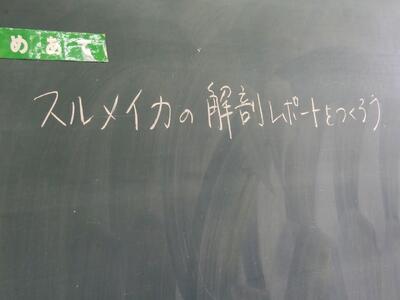 めあて
スルメイカの解剖レポートをつくろう